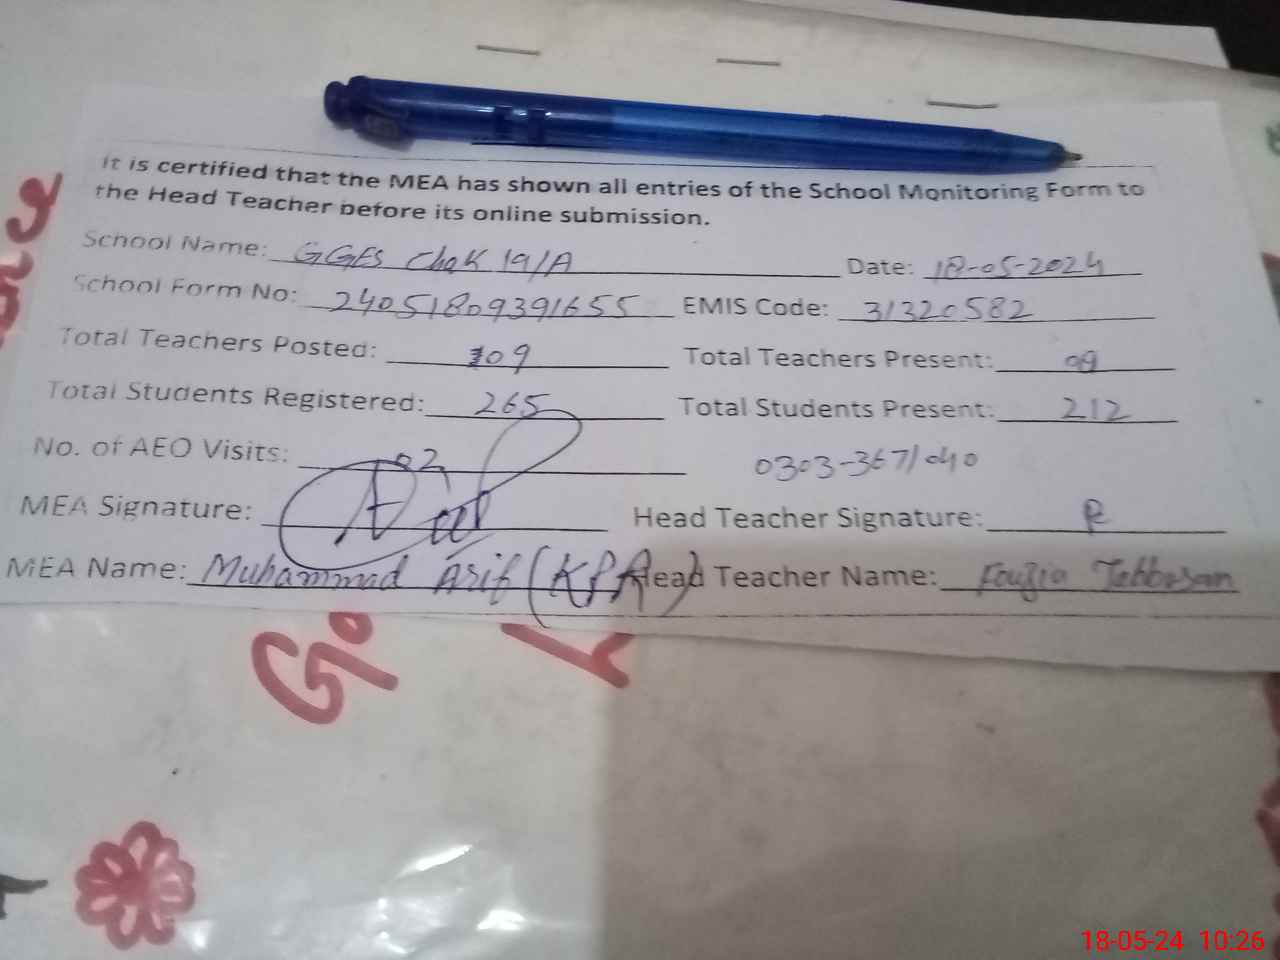 It is certified that the MEA has shown all entries of the School Monitoring Form to
the Head Teacher before its online submission.
School Name: GGES Chak 19/A Date: 18-05-2024
School Form No: 24051809391655 EMIS Code: 31320582
Total Teachers Posted: 09 Total Teachers Present: 09
Total Students Registered: 265 Total Students Present: 212
No. of AEO Visits: 02 0303-3671040
MEA Signature: Head Teacher Signature:
MEA Name: Muhammad Asif (KPR) Head Teacher Name: Fouzia Tabbasam
18-05-24 10:26